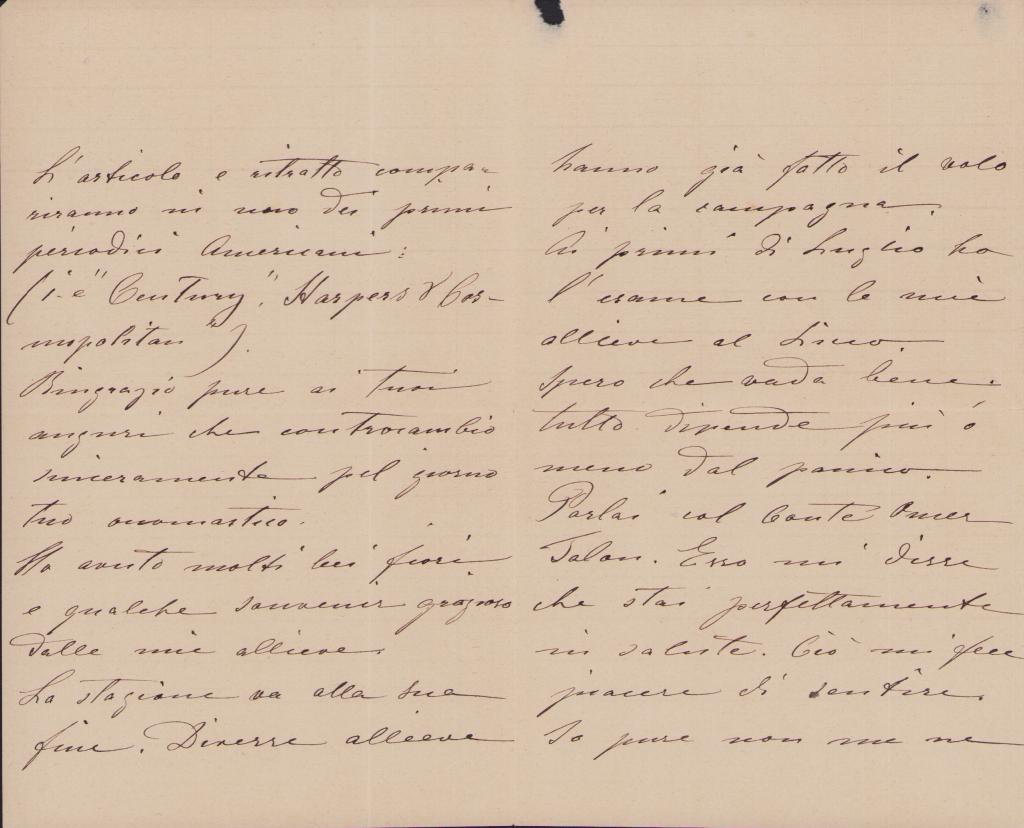 L'articolo e ritratto compa-
riranno in uno dei primi
periodici Americani:
(i.e "Century", Harpers & Cos-
mopolitan").
Ringrazio pure ai tuoi
auguri che controcambio
sinceramente pel giorno
tuo onomastico.
Ho avuto molti bei fiori
e qualche souvenir grazioso
dalle mie allieve.
La stagione va alla sua
fine. Diverse allieve
hanno già fatto il volo
per la campagna.
Ai primi di Luglio ho
l'esame con le mie
allieve al Liceo.
Spero che vada bene.
tutto dipende più o
meno dal panico.
Parlai col Conte Omer
Talon. Esso mi disse
che stai perfettamente
in salute. Ciò mi fece
piacere di sentire.
Io pure non me ne